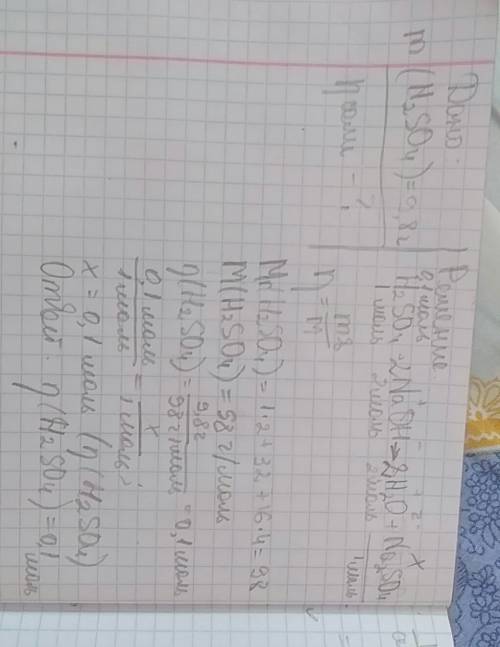 Дано:
m(H₂SO₄)=9,8г
η соли - ?
Решение.
0,1 моль x
H₂SO₄ + 2NaOH → 2H₂O + Na₂SO₄
1 моль 2 моль 2 моль 1 моль.
η = m/M
Mr(H₂SO₄) = 1·2+32+16·4=98
M(H₂SO₄) = 98 г/моль
η(H₂SO₄) = 9,8г / 98 г/моль = 0,1 моль
0,1 моль / 1 моль = x / 1 моль;
x = 0,1 моль (η(H₂SO₄)
Ответ: η(H₂SO₄)=0,1 моль